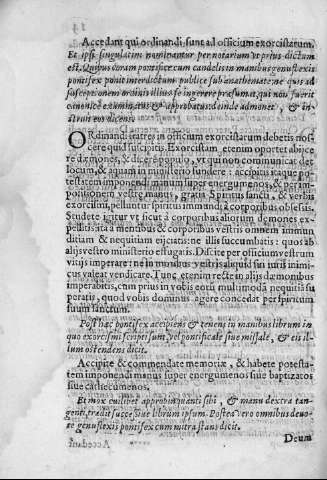 Accedant qui ordinandi sunt ad officium exorcistarum.
Et ipsi singulatim nominantur per notarium vt prius dictum
est. Quibus coram pontifice cum candelis in manibus genuflexis
pontifex ponit interdictum publice sub anathemate: ne quis ad
susceptionem ordinis illius se ingerere præsumat, qui non fuerit
canonice examinatus & approbatus: deinde admonet, & in-
struit eos dicens.
ORdinandi fratres in officium exorcistarum debetis nos-
cere quid suscipitis. Exorcistam etenim oportet abijce
re dæmones, & dicere populo, vt qui non communicat det
locum, & aquam in ministerio fundere: accipitis itaque po-
testatem imponendi manum super energumenos, & per im-
positionem vestrarum manuum, gratia Spiritus sancti, & verbis
exorcismi, pelluntur spiritus immundi à corporibus obsessis.
Studete igitur vt sicut à corporibus aliorum dæmones ex-
pellitis ita à mentibus & corporibus vestris omnem immun
ditiam & nequitiam eijciatis: ne illis succumbatis: quos ab
alijs vestro ministerio effugatis. Discite per officium vestrum
vitijs imperare: ne in moribus vestris aliquid sui iuris inimi-
cus valeat vendicare. Tunc etenim recte in alijs dæmonibus
imperabitis, cum prius in vobis eorũ multimodã nequitiã su
peratis, quod vobis dominus agere concedat per spiritum
suum sanctum.
Post hæc pontifex accipiens & tenens in manibus librum in
quo exorcismi scripti sunt, vel pontificale siue missale, & eis il-
lum ostendens dicit.
Accipite & commendate memoriæ, & habete potesta-
tem imponendi manus super energumenos siue baptizatos
siue cathecumenos.
Et mox cuilibet appropinquanti sibi, & manu dextra tan-
genti, tradit successiue librum ipsum. Postea vero omnibus deuo-
te genuflexis pontifex cum mitra stans dicit.
Deum